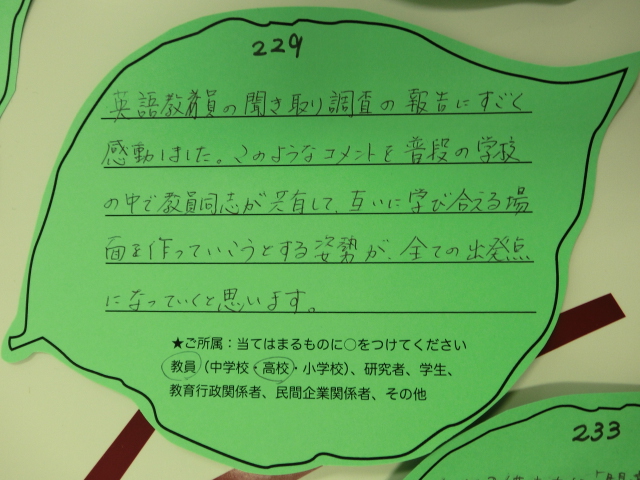 229
英語教員の聞き取り調査の報告にすごく
感動しました。このようなコメントを普段の学校
の中で教員同志が共有して、互いに学び合える場
面を作っていこうとする姿勢が、全ての出発点
になっていくと思います。
★ご所属：当てはまるものに○をつけてください
教員（中学校・高校・小学校）、研究者、学生、
教育行政関係者、民間企業関係者、その他
233